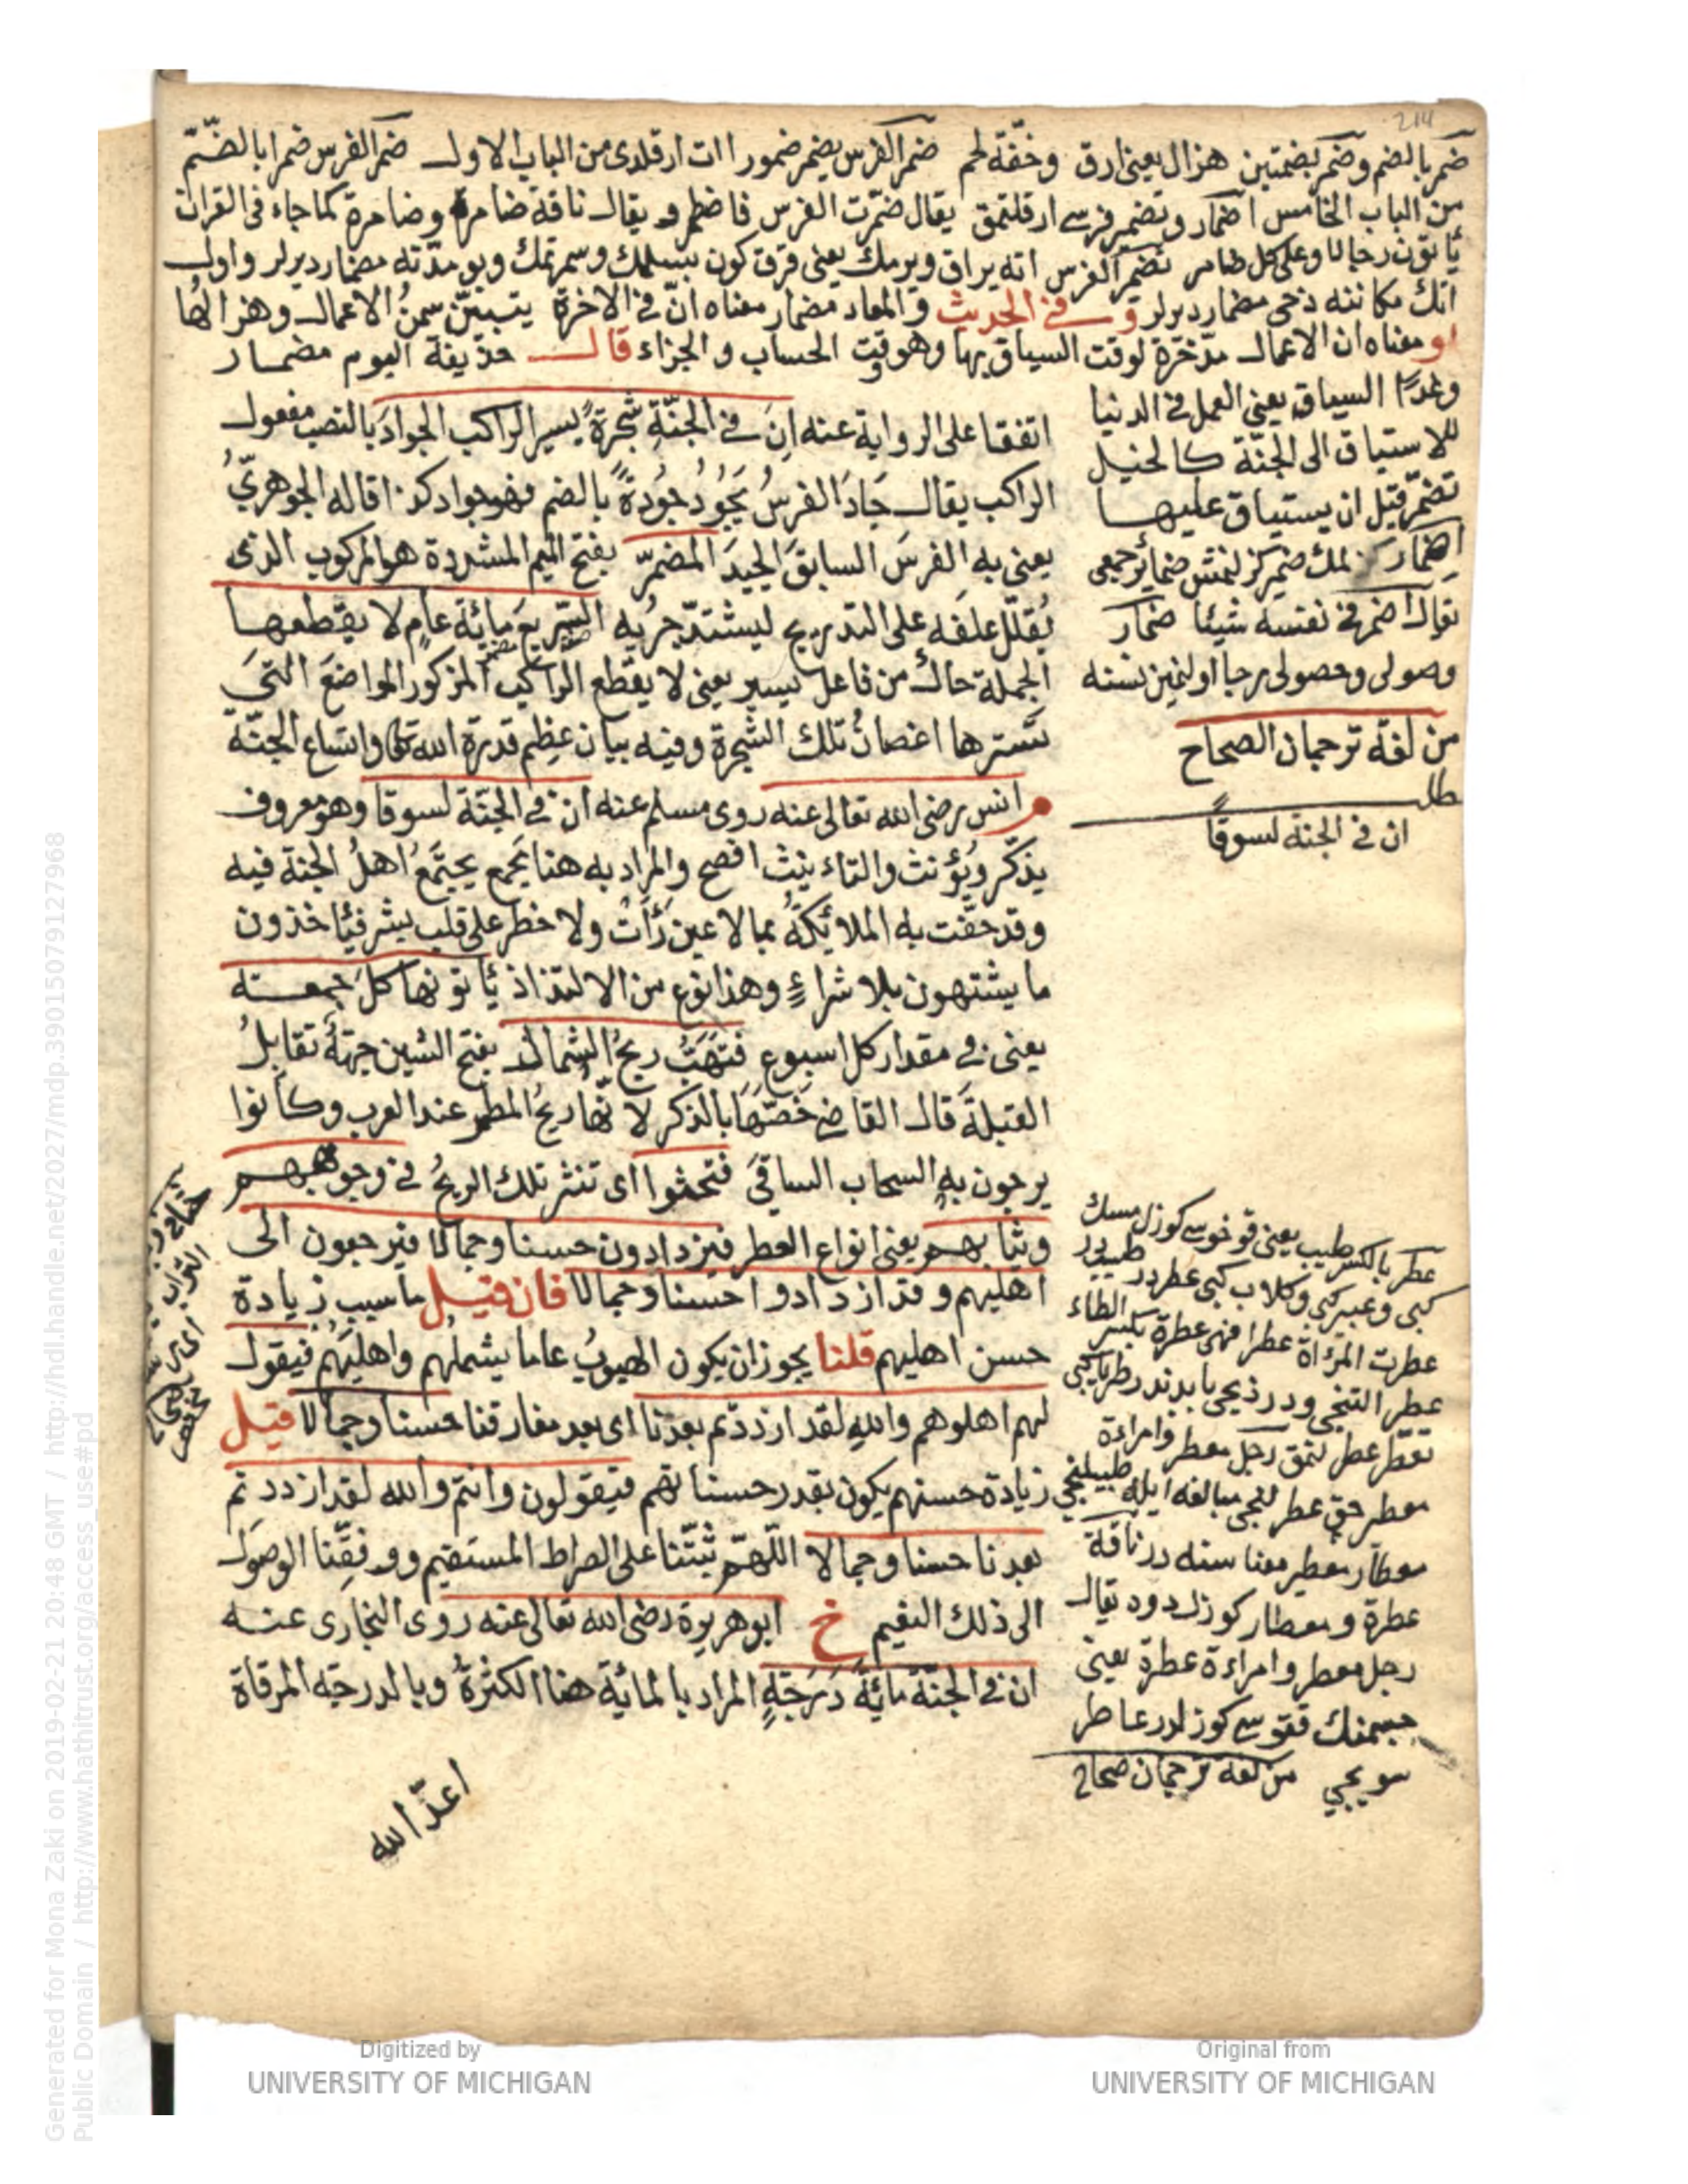 214
ضمر بالضم وضمر بضمتين هزال يعنى ارق وخفة لحم ضمر الفرس يضمر ضمورا ات ارقلدى من الباب الاول ضمر الفرس ضمرا بالضم
من الباب الخامس اضمار وتضمير فرسى ارقلتمق يقال ضمرت الفرس فاضطمر ويقال ناقة ضامر وضامرة كما جاء فى القران
يأتون رجالا وعلى كل ضامر تضمر الفرس اته يراق ويرمك يعنى قرق كون بسلمك وسمرتمك وبو مدته مضمار ديرلر واول
انك مكاننه دخى مضمار ديرلر وفى الحديث والمعاد مضمار معناه ان فى الاخرة يتبين سمن الاعمال وهزالها
او معناه ان الاعمال مدخرة لوقت السياق بها وهو وقت الحساب والجزاء قال حذيفة اليوم مضمار
وغدا السياق يعنى العمل فى الدنيا
للاستياق الى الجنة كالخيل
تضمر قبل ان يستياق عليها
اضمار كزلمك ضمير كزلنمش ضمائر جمعى
تقال اضمر فى نفسه شيئا ضمار
وصولى وحصولى رجا اولنمين نسنه
من لغة ترجمان الصحاح
اتفقا على الرواية عنه ان فى الجنة شجرة يسير الراكب الجواد بالنصب مفعول
الراكب يقال جاد الفرس يجود جودة بالضم فهو جواد كذا قاله الجوهرى
يعنى به الفرس السابق الجيد المضمر بفتح الميم المشددة هو المركوب الذى
يقلل علفه على التدريج ليشتد جريه السريع مائة عام لا يقطعها
الجملة حال من فاعل يسير يعنى لا يقطع الراكب المذكور المواضع التى
تسترها اغصان تلك الشجرة وفيه بيان عظيم قدرة الله تعالى واتساع الجنة
م انس رضى الله تعالى عنه روى مسلم عنه ان فى الجنة لسوقا وهو معروف
يذكر ويؤنث والتاءنيث افصح والمراد به هنا مجمع يجتمع اهل الجنة فيه
وقد حفت به الملائكة بما لا عين رأت ولا خطر على قلب بشر فيأخذون
ما يشتهون بلا شراء وهذا نوع من الالتذاذ يأتونها كل جمعة
يعنى فى مقدار كل اسبوع فتهب ريح الشمال بفتح الشين جهة تقابل
القبلة قال القاضى خصها بالذكر لانها ريح المطر عند العرب وكانوا
يرجون به السحاب الساقى فتحثوا اى تنثر تلك الريح فى وجوههم
وثيابهم يعنى انواع العطر فيزدادون حسنا وجمالا فيرجعون الى
اهليهم وقد ازدادوا حسنا وجمالا فان قيل ما سبب زيادة
حسن اهليهم قلنا يجوز ان يكون الهبوب عاما يشملهم واهليهم فيقول
لهم اهلوهم والله لقد ازددتم بعدنا اى بعد مفارقنا حسنا وجمالا قيل
زيادة حسنهم يكون بقدر حسناتهم فيقولون وانتم والله لقد ازددتم
بعدنا حسنا وجمالا اللهم ثبتنا على الصراط المستقيم ووفقنا الوصول
الى ذلك النعيم خ ابو هريرة رضى الله تعالى عنه روى البخارى عنه
ان فى الجنة مائة درجة المراد بالمائة هنا الكثرة وبالدرجة المرقاة
اعدّ الله
ان فى الجنة لسوقا
عطر بالكسر طيب يعنى قوخوسى كوزل مسك
كبى وعبير كبى وكلاب كبى عطردر
عطرت المرءاة عطرا فهى عطرة بكسر الطاء
تعطر عطر لنمق رجل معطر وامراءة
معطار معطير معنا سنه در ناقة
عطرة ومعطار كوزل دوه تقال
رجل معطر وامراءة عطرة يعنى
جسمنك قوقوسى كوزلدر عاطر
سويجى من لغة ترجمان صحاح
Generated for Mona Zaki on 2019-02-21 20:48 GMT / http://hdl.handle.net/2027/mdp.39015079127968
Public Domain / http://www.hathitrust.org/access_use#pd
Digitized by
UNIVERSITY OF MICHIGAN
Original from
UNIVERSITY OF MICHIGAN